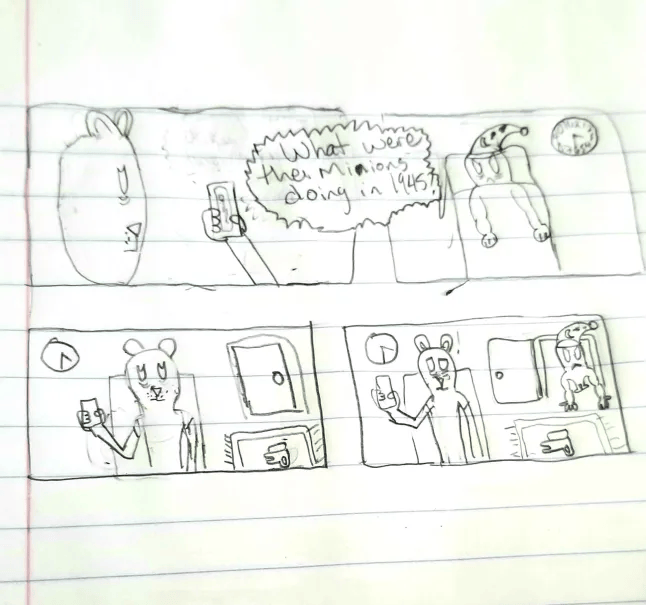 What were
the Minions
doing in 1945?